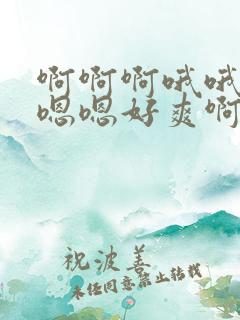 啊啊啊哦哦
嗯嗯好爽啊
祝波善
未经同意禁止转载